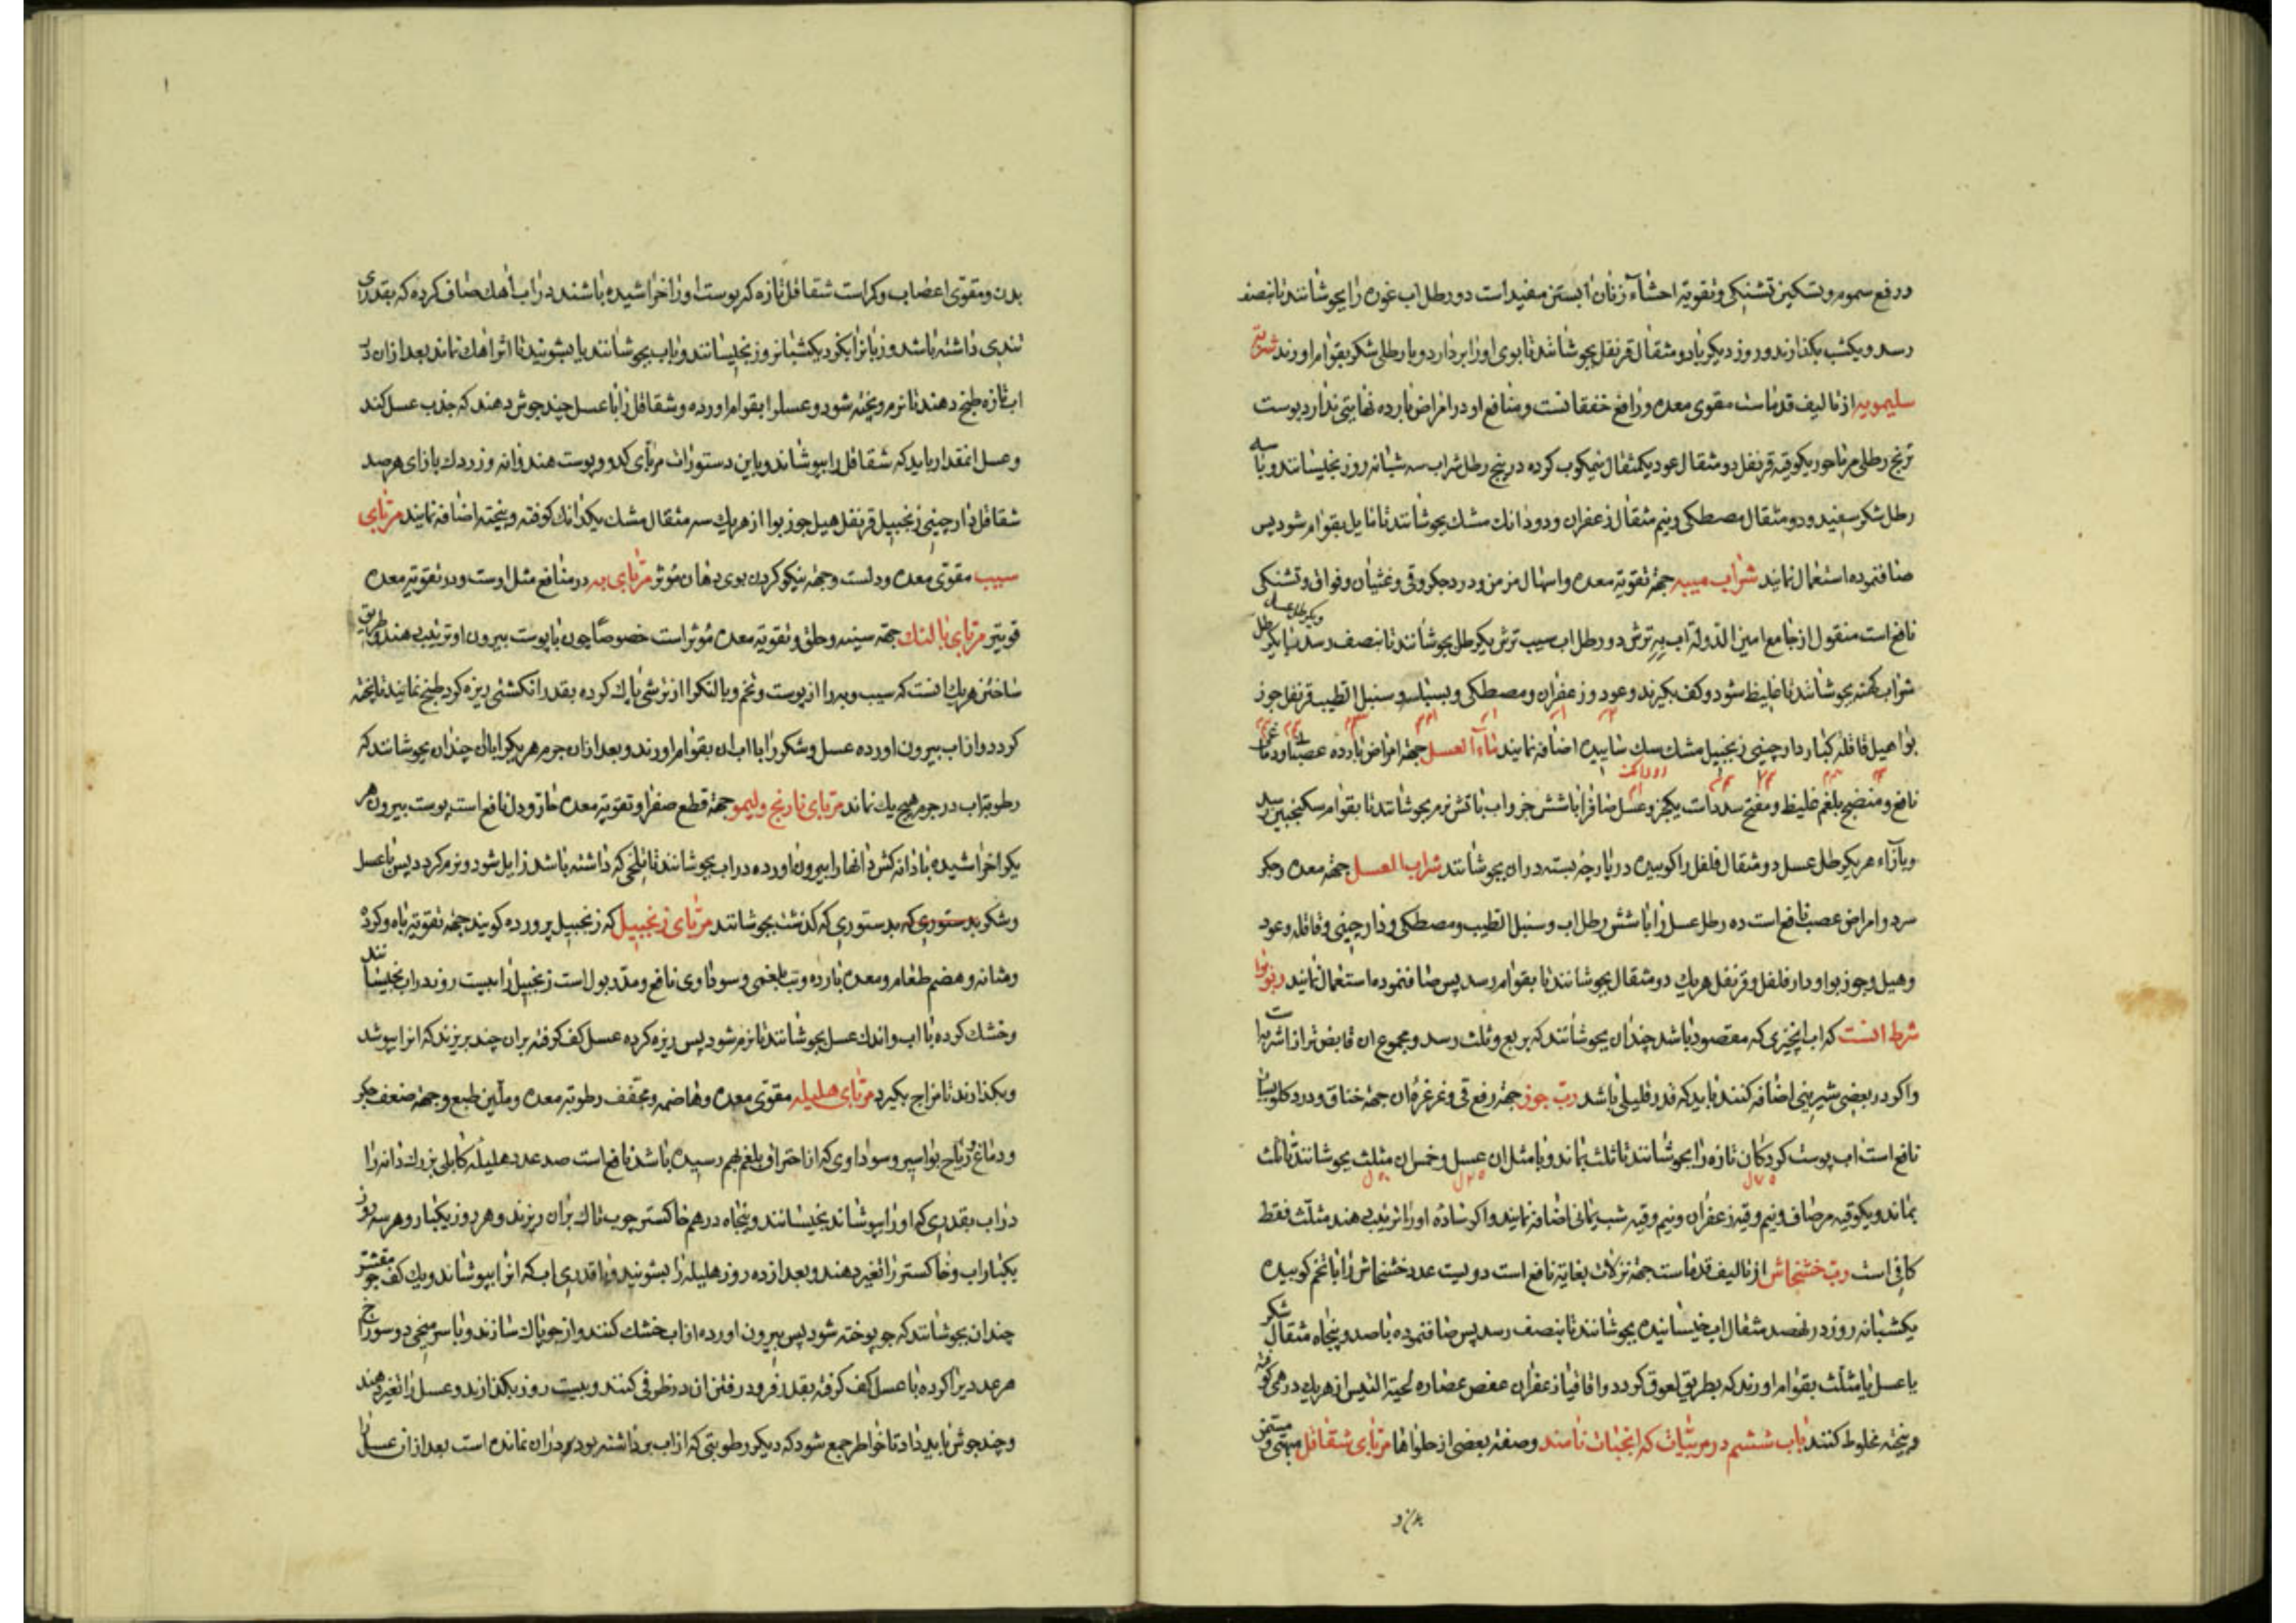 ورفع سموم وتسکین تشنکی وتقویة احشاء زنان آبستن مفید است دو رطل اب غوره را بجوشانند تا بنصف
رسد ویکشب بکذارند وروز دیکر با دو مثقال قرنفل بجوشانند تا بوی اورا بردارد وبا رطلی شکر بقوام اورند شربتی
سلیمویه از تالیف قدماست مقوی معده ورافع خفقانست ومنافع او در امراض بارده نهایتی ندارد پوست
ترنج رطلی مرماحوز یکوقیه قرنفل دو مثقال عود یکمثقال نیمکوب کرده در پنج رطل شراب سه شبانه روز بخیسانند وبا سه
رطل شکر سفید ودو مثقال مصطکی ونیم مثقال زعفران ودو دانک مشک بجوشانند تا مایل بقوام شود پس
صاف نموده استعمال نمایند شراب میبه جهة تقویة معده واسهال مزمن ودرد جکر وقی وغثیان وفواق وتشنکی
نافع است منقول از جامع امین الدوله آب به ترش دو رطل اب سیب ترش یکرطل بجوشانند تا بنصف رسد با یکرطل ویکرطل عسل
شراب کهنه بجوشانند تا غلیظ شود وکف بکیرند وعود وزعفران ومصطکی وبسباسه وسنبل الطیب قرنفل جوز
بوا هیل قاقله کبار دارچینی زنجبیل مشک سک ساییده اضافه نمایند ماء العسل جهة امراض بارده عصب ودماغ
نافع ومنضج بلغم غلیظ ومفتح سددات یکجزو عسل صاف را با شش جزو اب باتش نرم بجوشانند تا بقوام سکنجبین رسد
وبازاء هر یکرطل عسل دو مثقال فلفل را کوبیده در پارچه بسته در ان بجوشانند شراب العسل جهة معده وجکر
سرد وامراض عصب نافع است ده رطل عسل را با شش رطل اب وسنبل الطیب ومصطکی ودارچینی وقاقله وعود
وهیل وجوزبوا ودارفلفل وقرنفل هریک دو مثقال بجوشانند تا بقوام رسد پس صاف نموده استعمال نمایند ربوبرا
شرط انست که اب انچیزی که مقصود باشد چندان بجوشانند که بربع وثلث رسد ومجموع ان قابض تر از اشربه است
واکر در بعضی شیرینی اضافه کنند باید که قدر قلیلی باشد رب جوز جهة رفع قی وغرغره ان جهة خناق ودرد کلو بسیار
نافع است اب پوست کردکان تازه را بجوشانند تا ثلث بماند وبا مثل ان عسل وخمس ان مثلث بجوشانند تا ثلث
بماند ویکوقیه مر صاف ونیم وقیه زعفران ونیم وقیه شب یمانی اضافه نمایند واکر ساده اورا ترتیب دهند مثلث فقط
کافی است رب خشخاش از تالیف قدماست جهة نزلات بغایة نافع است دویست عدد خشخاش را با تخم کوبیده
یکشبانه روز در نهصد مثقال اب خیسانیده بجوشانند تا بنصف رسد پس صاف نموده با صد وپنجاه مثقال شکر
یا عسل یا مثلث بقوام اورند که بطریق لعوق کردد واقاقیا زعفران عفص عصاره لحیة التیس از هریک درهمی کوفته
وبیخته مخلوط کنند باب ششم در مربیات که انبجات نامند وصفة بعضی از حلواها مربای شقاقل مبهی ومسمن
بدن و
بدن ومقوی اعضاب وکراست شقاقل تازه که پوست اورا خراشیده باشند در اب آهک صاف کرده که بقدری
تندی داشته باشد وزبانرا بکزد یکشبانروز بخیسانند وباب بجوشانند یا بشویند تا اثر اهک نماند بعد از ان در
اب تازه طبخ دهند تا نرم وپخته شود وعسل را بقوام اورده وشقاقل را با عسل چند جوش دهند که جذب عسل کند
وعسل انمقدار باید که شقاقل را بپوشاند وباین دستورات مربای کدو وپوست هندوانه وزردک بازای هر صد
شقاقل دارچینی زنجبیل قرنفل هیل جوزبوا از هریک سه مثقال مشک یکدانک کوفته وبیخته اضافه نمایند مربای
سیب مقوی معده ودلست وجهة نیکو کردن بوی دهان مؤثر مربای به در منافع مثل اوست ودر تقویة معده
قویتر مربای بالنک جهة سینه وحلق وتقویة معده مؤثر است خصوصاً چون با پوست بیرون او ترتیب دهند وطریق
ساختن هریک انست که سیب وبه را از پوست وتخم وبالنک را از ترشی پاک کرده بقدر انکشتی ریزه کرد طبخ نمایند تا پخته
کردد واز اب بیرون اورده عسل وشکر را با اب ان بقوام اورند وبعد از ان جرم هر یکرا با ان چندان بجوشانند که
رطوبة اب در جرم هیچ یک نماند مربای نارنج ولیمو جهة قطع صفرا وتقویة معده حار ودل نافع است پوست بیرون هر
یکرا خراشیده با دانه کش دانها را بیرون اورده در اب بجوشانند تا تلخی که داشته باشد زایل شود ونرم کردد پس با عسل
وشکر بدستوری که بدستوری که کذشت بجوشانند مربای زنجبیل که زنجبیل پرورده کویند جهة تقویة باه وکرده
ومثانه وهضم طعام ومعده بارده وتب بلغمی وسوداوی نافع ومدر بول است زنجبیل را بیست روز در اب بخیسانند
وخشک کرده با اب واندک عسل بجوشانند تا نرم شود پس ریزه کرده عسل کف کرفته بران چند بریزند که انرا بپوشد
وبکذارند تا مزاج بکیرد مربای هلیله مقوی معده وهاضمه ومجفف رطوبة معده وملین طبع وجهة ضعف جکر
ودماغ وریاح بواسیر وسوداوی که از احتراق بلغم بهم رسیده باشد نافع است صد عدد هلیله کابلی بزرک دانه را
در اب بقدری که اورا بپوشاند بخیسانند وپنجاه درهم خاکستر چوب تاک بران ریزند وهر روز یکبار وهر سه روز
یکبار اب وخاکستر را تغیر دهند وبعد از ده روز هلیله را بشویند وبا قدری اب که انرا بپوشاند ویک کف جو مقشر
چندان بجوشانند که جو پوخته شود پس بیرون اورده از اب خشک کنند واز جو پاک سازند وبا سر میخی دو سوراخ
هر عدد یرا کرده با عسل کف کرفته بقدر فرو رفتن ان در ظرفی کنند وبیست روز بکذارند وعسل را تغیر دهند
وچند جوش باید داد تا خواطر جمع شود که دیکر رطوبتی که از اب برداشته بود در ان نمانده است بعد از ان عسل را